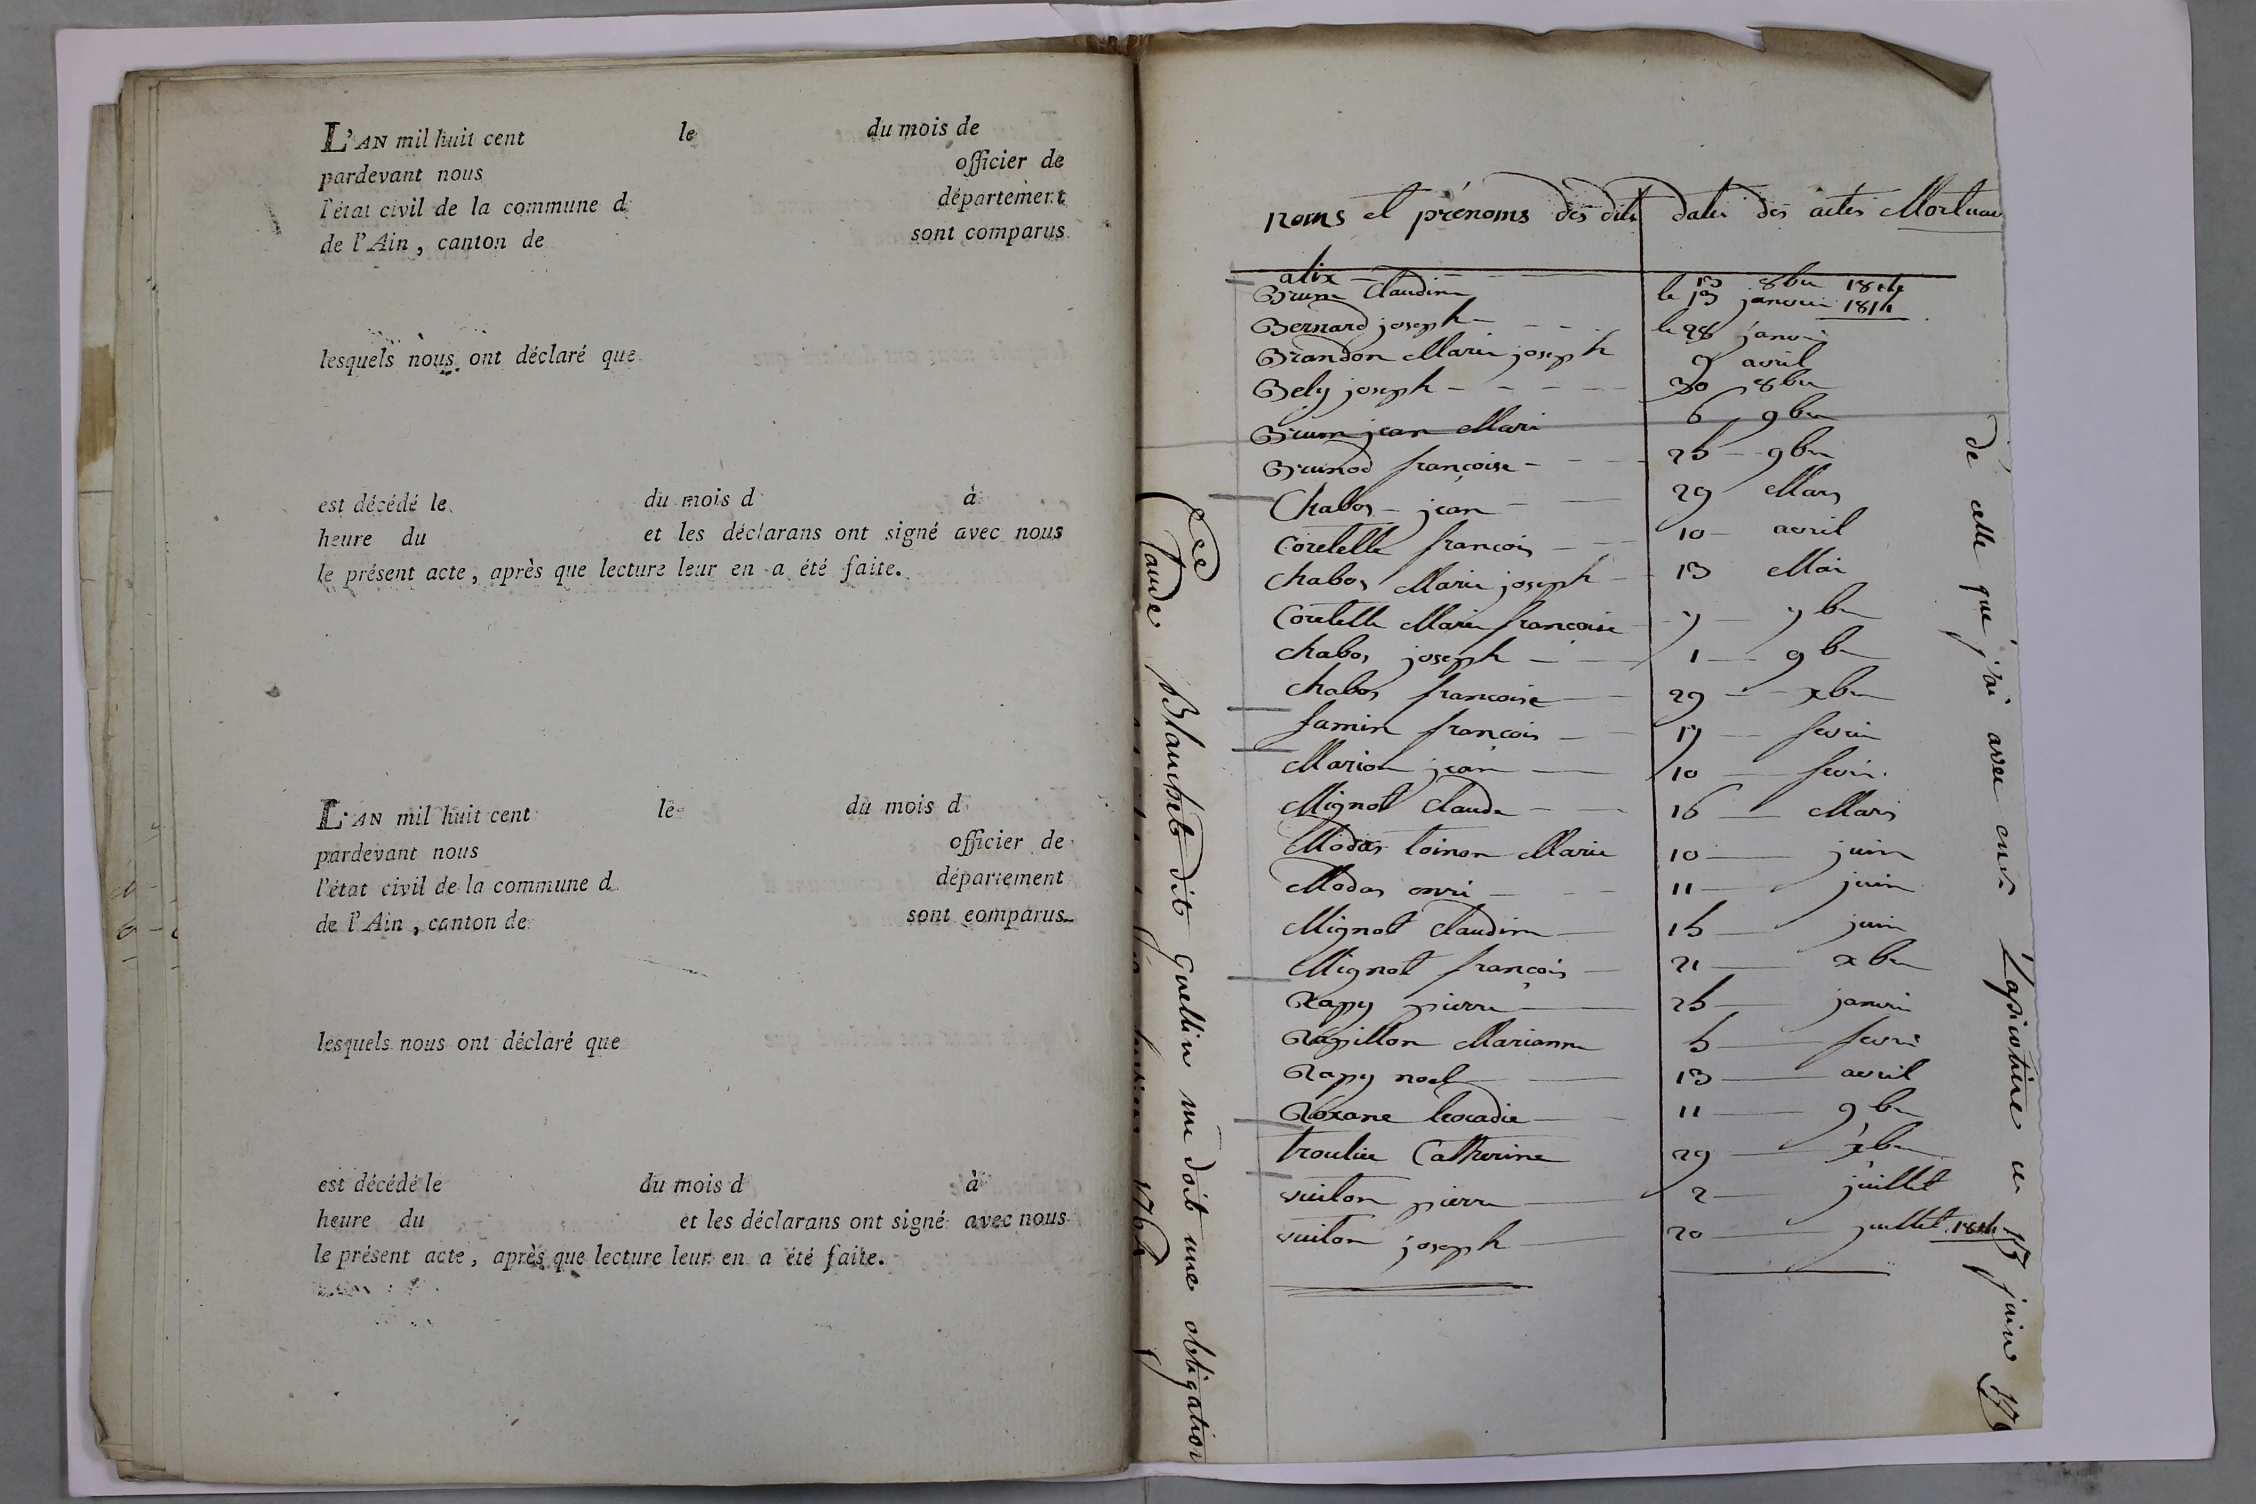 L'AN mil huit cent le du mois de
pardevant nous officier de
l'état civil de la commune d département
de l'Ain, canton de sont comparus
lesquels nous ont déclaré que
est décédé le du mois d à
heure du et les déclarans ont signé avec nous
le présent acte, après que lecture leur en a été faite.
L'AN mil huit cent le du mois d
pardevant nous officier de
l'état civil de la commune d département
de l'Ain, canton de sont comparus
lesquels nous ont déclaré que
est décédé le du mois d à
heure du et les déclarans ont signé avec nous
le présent acte, après que lecture leur en a été faite.
noms et prénoms des dits dates des actes Mortuai
alix 13 8bre 1814
Brun Claudine le 13 janvier 1814
Bernard joseph le 28 janvier
Brandon Marie joseph 9 avril
Bely joseph 30 8bre
Brun jean Marie 6 9bre
Brunod françoise 25 9bre
Chabos jean 29 Mars
Coretelle françois 10 avril
Chabos Marie joseph 13 Mai
Coretelle Marie françoise 7 7bre
chabos joseph 1 9bre
chabos françoise 29 xbre
Jamin françois 17 fevrier
Marion jean 10 fevrier
Mignot Claude 16 Mars
Modas toinon Marie 10 juin
Modas 11 juin
Mignot Claudine 15 juin
Mignot françois 21 xbre
Rapy pierre 25 janvier
Papillon Marianne 5 fevrier
Rapy noel 13 avril
Roxane leocadie 11 9bre
troulier Catherine 29 xbre
vuiton pierre 2 juillet
vuiton joseph 20 juillet 1814
Claude Blanchet dit Guellin me doit une obligation
1764
de celle que j'ai avec ce 13 juin 176